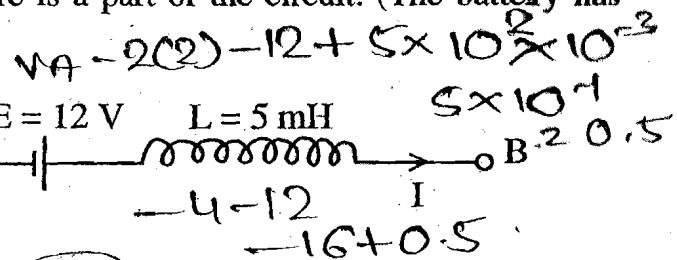 is a part of the circuit. (The battery has
VA - 2(2) - 12 + 5 × 10² × 10⁻³
5 × 10⁻¹
E = 12 V L = 5 mH
B = 0.5
I
-4-12
-16+0.5